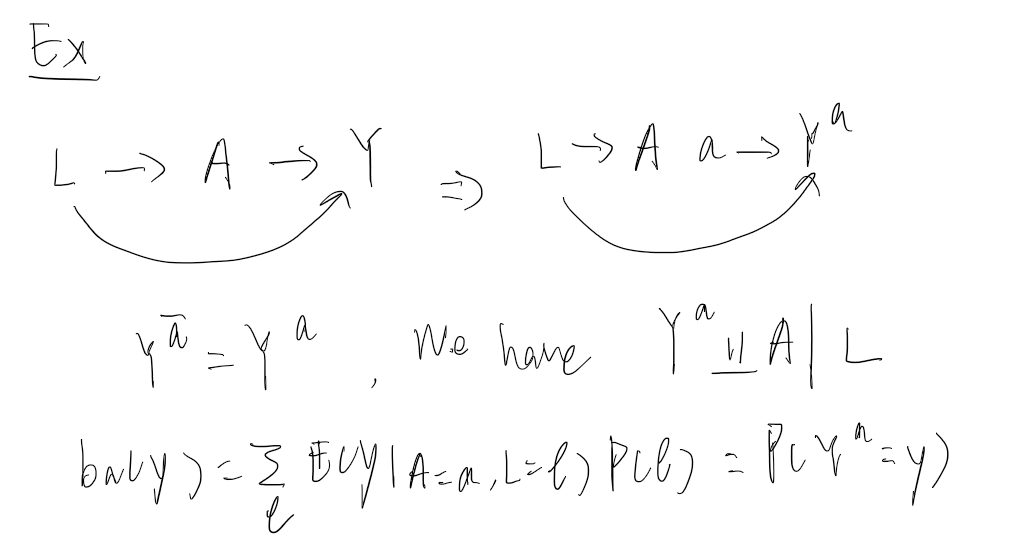 Ex
L → A → Y ⇒ L → A a → Y^a
Y^ā = Y^a, We have Y^a ⫫ A | L
ba(y) = Σ_l E(y | A=a, L=l) P(l) = P(Y^a = y)